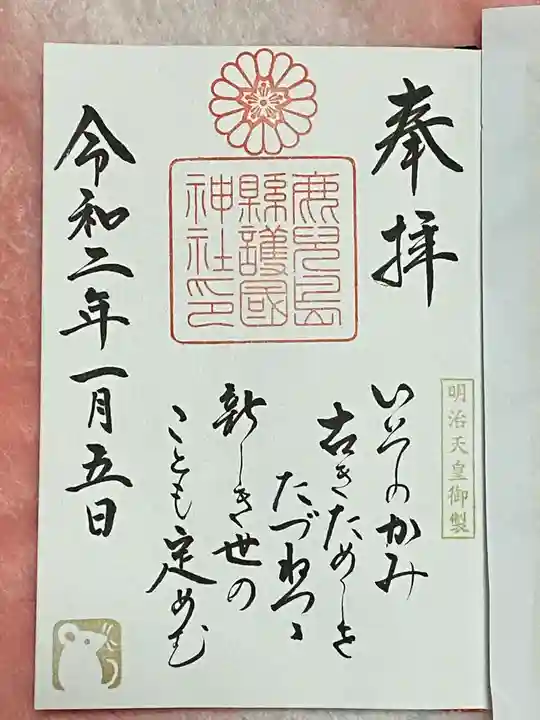 奉拝
鹿兒島
縣護國
神社印
明治天皇御製
いそのかみ
古きためしを
たづねつゝ
新しき世の
ことも定めむ
令和二年一月五日